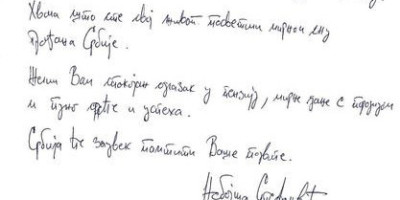 Хвала што сте свој живот посветили мирном сну
грађана Србије.
Желим Вам спокојан одлазак у пензију, мирне дане с породицом
и пуно среће и успеха.
Србија ће заувек памтити Ваше подвиге.
Небојша